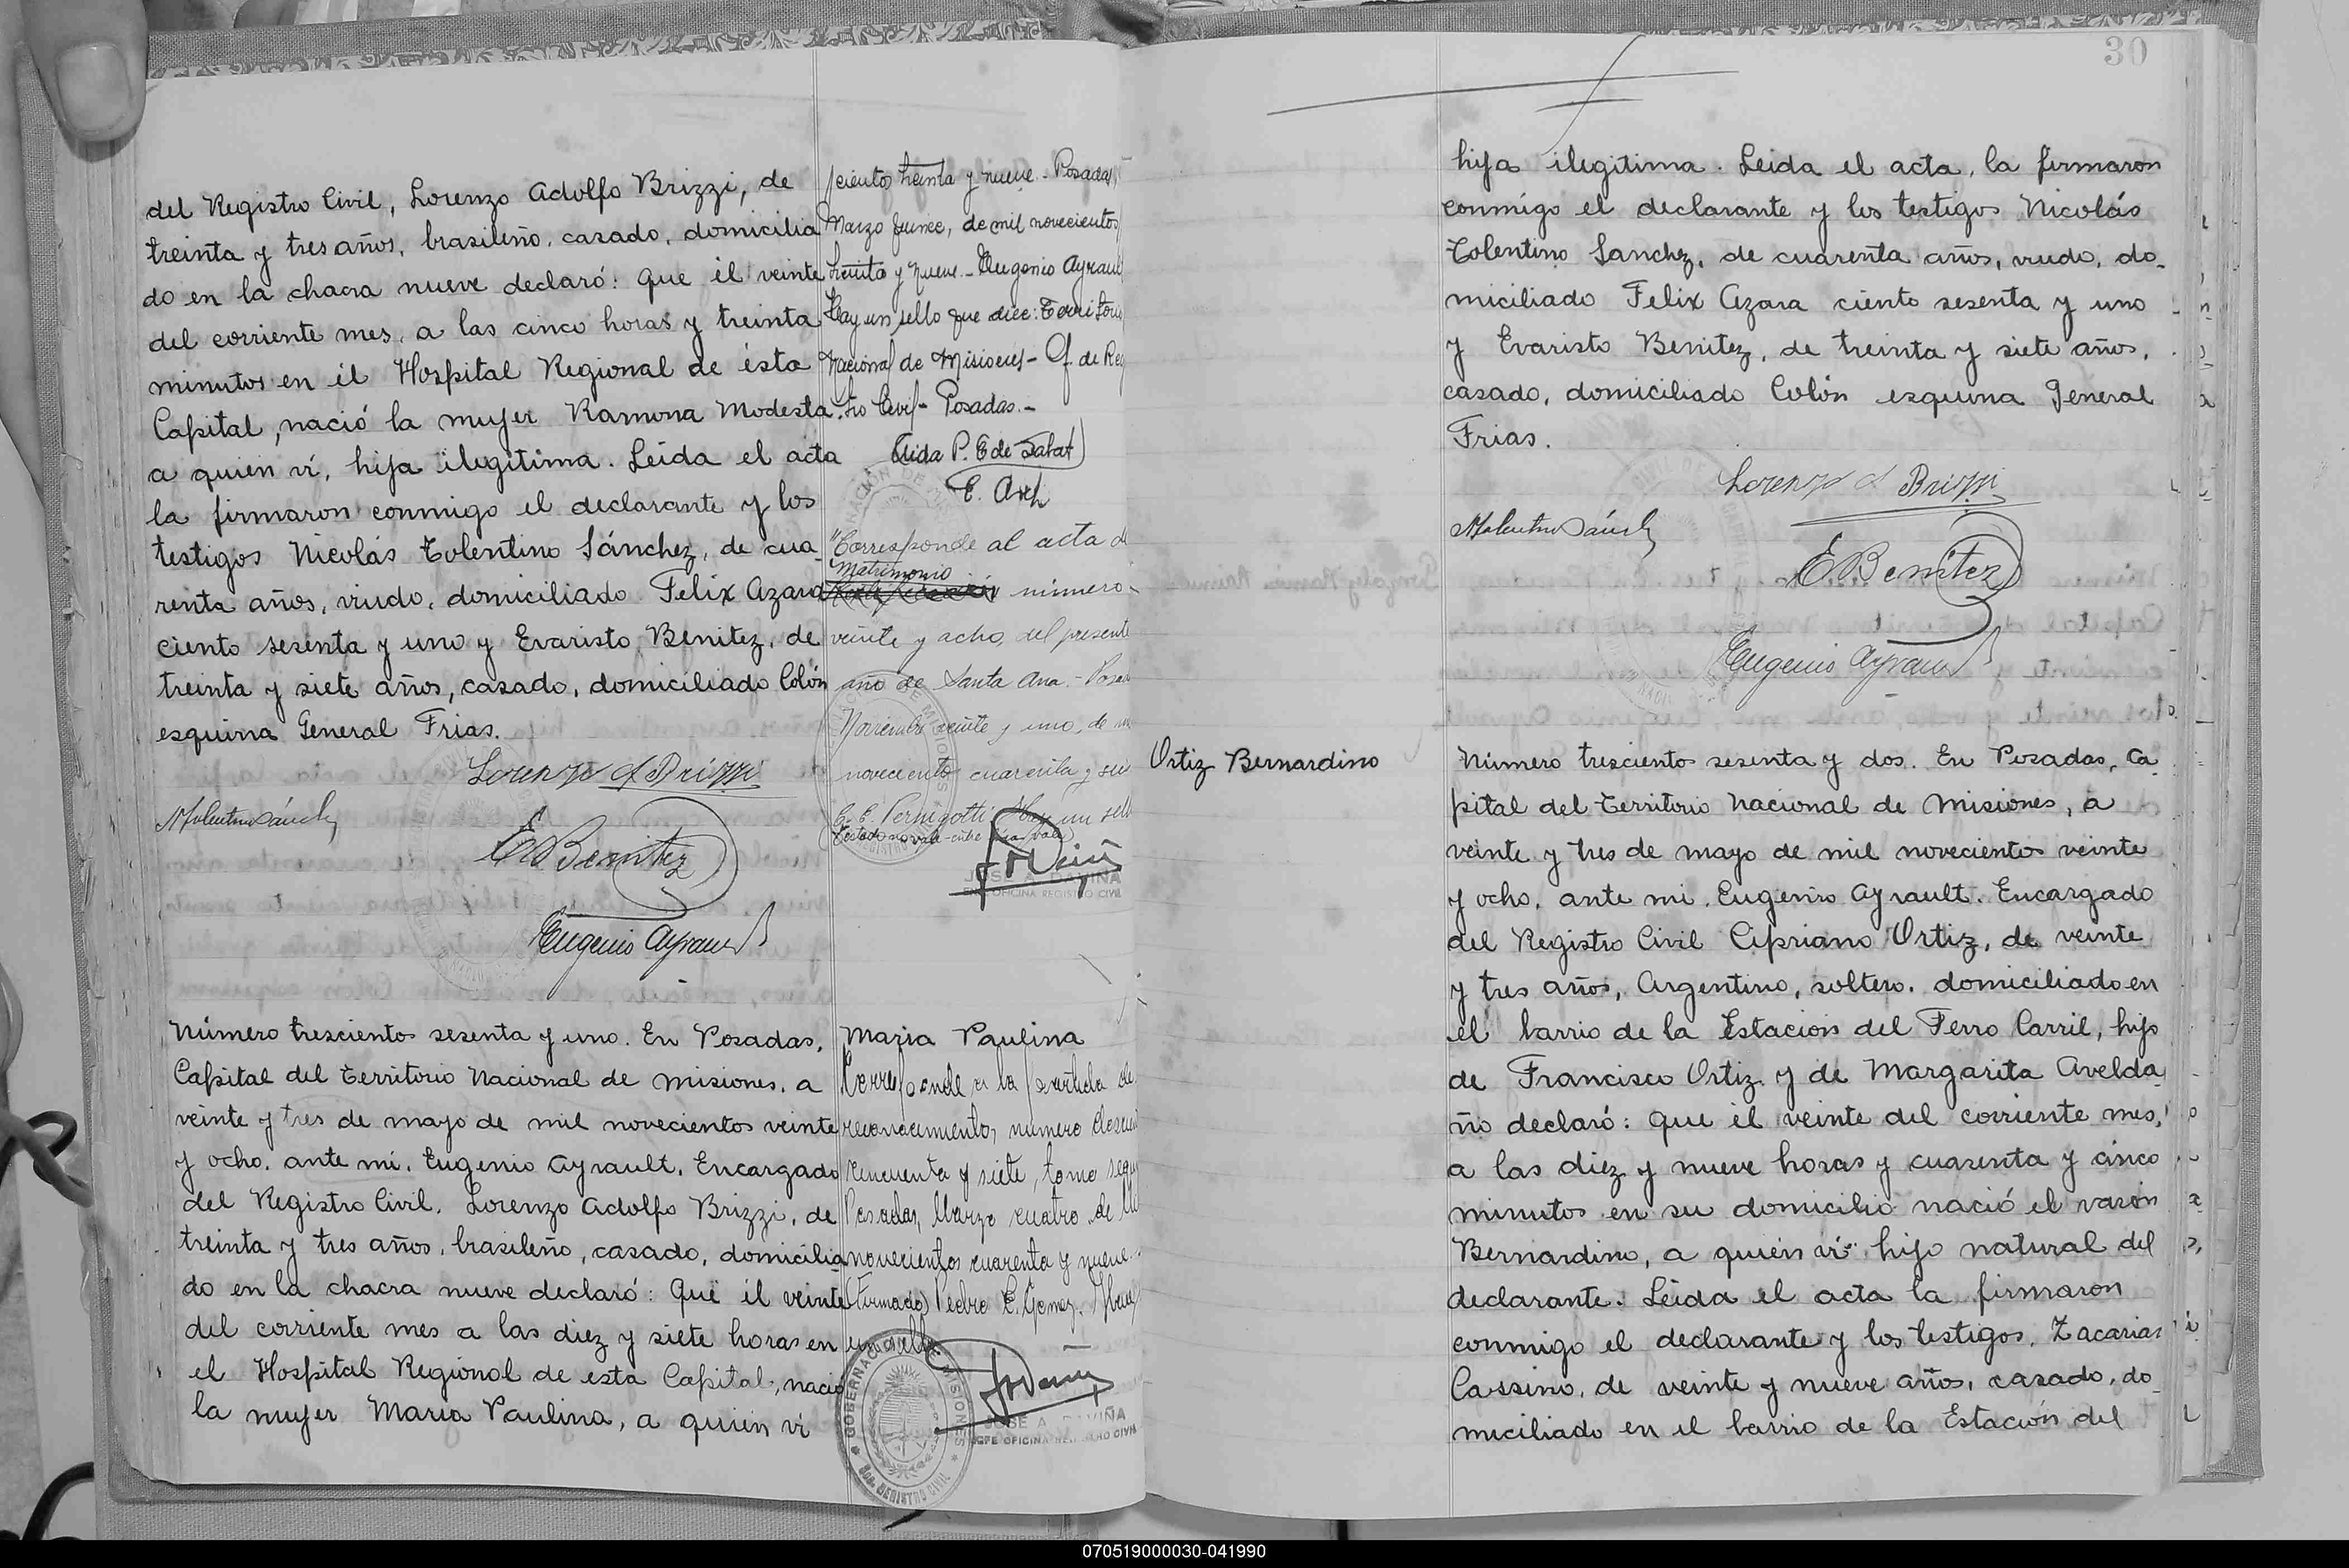 del Registro Civil, Lorenzo Adolfo Brizzi, de
treinta y tres años, brasileño, casado, domicilia
do en la chacra nueve declaró: Que el veinte
del corriente mes, a las cinco horas y treinta
minutos en él Hospital Regional de ésta
Capital, nació la mujer Ramona Modesta
a quien ví, hija ilegitima. Leida el acta
la firmaron conmigo el declarante y los
testigos Nicolás Tolentino Sánchez, de cua-
renta años, viudo, domiciliado Felix Azara
ciento sesenta y uno y Evaristo Benitez, de
treinta y siete años, casado, domiciliado Colón
esquina General Frias.
Lorenzo A Brizzi
NTolentino Sánch
E Benitez
Eugenio Ayrault
Número trescientos sesenta y uno. En Posadas,
Capital del Territorio Nacional de Misiones, a
veinte y tres de mayo de mil novecientos veinte
y ocho, ante mi, Eugenio Ayrault, Encargado
del Registro Civil, Lorenzo Adolfo Brizzi, de
treinta y tres años, brasileño, casado, domicilia
do en la chacra nueve declaró: Que el veinte
del corriente mes a las diez y siete horas en
el Hospital Regional de esta Capital, nació
la mujer Maria Paulina, a quién ví
cientos treinta y nueve - Posadas
Marzo quince, de mil novecientos
treinta y nueve - Eugenio Ayraul
Hay un sello que dice: Territorio
Nacional de Misiones - Of de Reg
tro Civil - Posadas. -
Aida P. E de
"Corresponde al acta d
matrimonio
número
veinte y ocho, del presente
año de Santa Ana. - Posad
Noviembre veinte y uno, de m
novecientos cuarenta y sei
C. E. Pernigotti Hay un sell
JOSE A. DAVIÑA
OFICINA REGISTRO CIVIL
Maria Paulina
Corresponde a la partida de
reconocimiento, numero doscien
cincuenta y siete, tomo segu
Posadas, Marzo cuatro de Mi
novecientos cuarenta y nueve.
(Firmado) Pedro E. Gomez. Hay
un sello
GOBERNACION DE MISIONES
REGISTRO CIVIL
JOSE A. DAVIÑA
JEFE OFICINA REGISTRO CIVIL
30
hija ilegitima. Leida el acta, la firmaron
conmigo el declarante y los testigos Nicolás
Tolentino Sanchez, de cuarenta años, viudo, do-
miciliado Felix Azara ciento sesenta y uno
y Evaristo Benitez, de treinta y siete años,
casado, domiciliado Colón esquina General
Frias.
Lorenzo A Brizzi
NTolentino Sánch
E Benitez
Eugenio Ayrault
Ortiz Bernardino
Número trescientos sesenta y dos. En Posadas, Ca
pital del Territorio Nacional de Misiones, a
veinte y tres de mayo de mil novecientos veinte
y ocho, ante mi, Eugenio Ayrault. Encargado
del Registro Civil Cipriano Ortiz, de veinte
y tres años, Argentino, soltero, domiciliado en
el barrio de la Estación del Ferro Carril, hijo
de Francisco Ortiz y de Margarita Avelda
ño declaró: Que el veinte del corriente mes,
a las diez y nueve horas y cuarenta y cinco
minutos en su domicilio nació el varón
Bernardino, a quién ví hijo natural del
declarante. Leida el acta la firmaron
conmigo el declarante y los testigos, Zacarias
Cassino, de veinte y nueve años, casado, do-
miciliado en el barrio de la Estación del
070519000030-041990